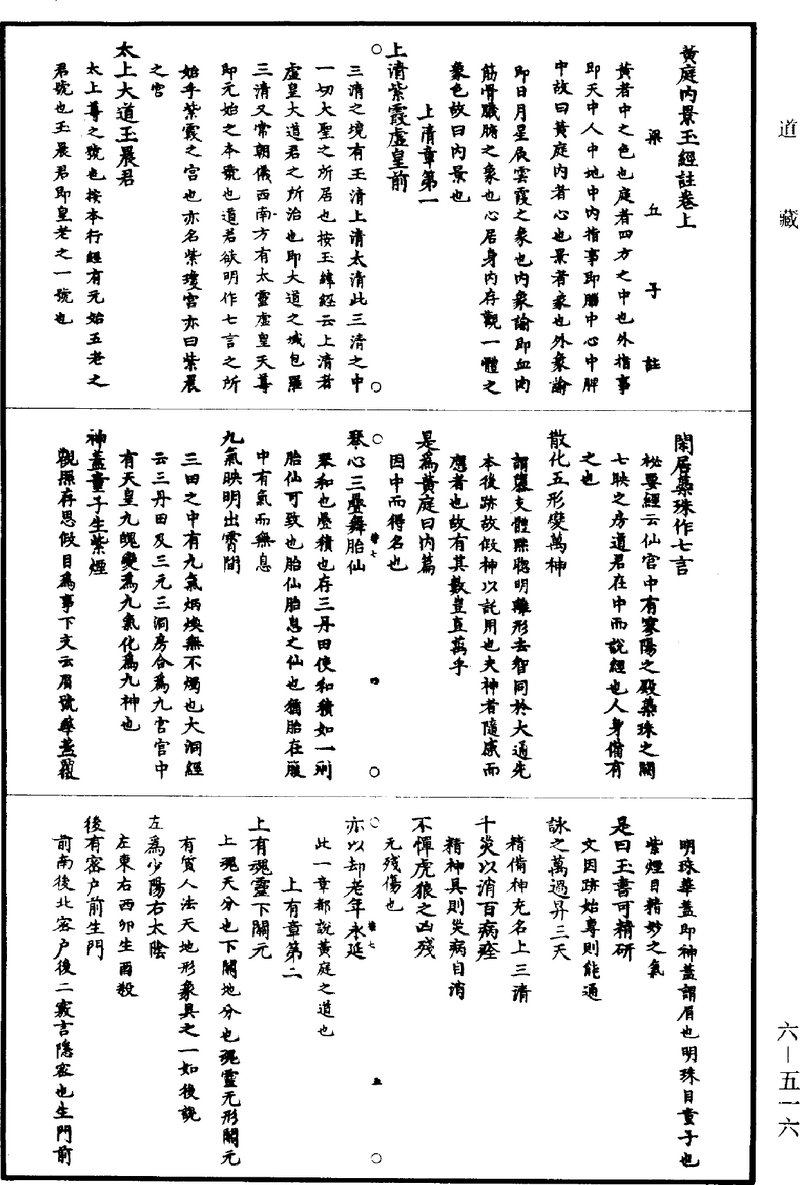 道藏
六—五一六
黃庭內景玉經註卷上
梁丘子註
黃者中之色也庭者四方之中也外指事
即天中人中地中內指事即腦中心中脾
中故曰黃庭內者心也景者象也外象諭
即日月星辰雲霞之象也內象諭即血肉
筋骨臟腑之象也心居身內存觀一體之
象色故曰內景也
上清章第一
上清紫霞虛皇前
三清之境有玉清上清太清此三清之中
一切大聖之所居也按玉緯經云上清者
虛皇大道君之所治也即大道之域包羅
三清又常朝儀西南方有太靈虛皇天尊
即元始之本號也道君欲明作七言之所
始乎紫霞之宮也亦名紫瓊宮亦曰紫晨
之宮
太上大道玉晨君
太上尊之號也按本行經有元始五老之
君號也玉晨君即皇老之一號也
閑居蘂珠作七言
秘要經云仙宮中有寥陽之殿蘂珠之闕
七映之房道君在中而說經也人身備有
之也
散化五形變萬神
謂墮支體黜聰明離形去智同於大通先
本後跡故假神以託用也夫神者隨感而
應者也故有其數豈直萬乎
是為黃庭曰內篇
因中而得名也
琴心三疊舞胎仙
琴和也疊積也存三丹田使和積如一則
胎仙可致也胎仙胎息之仙也猶胎在腹
中有氣而無息
九氣映明出霄間
三田之中有九氣炳煥無不燭也大洞經
云三丹田及三元三洞房合為九宮宮中
有天皇九魄變為九氣化為九神也
神蓋童子生紫煙
觀照存思假目為事下文云眉號華蓋覆
明珠華蓋即神蓋謂眉也明珠目童子也
紫煙目精妙之氣
是曰玉書可精研
文因跡始專則能通
詠之萬過昇三天
精備神充名上三清
千災以消百病痊
精神具則災病自消
不憚虎狼之凶殘
无殘傷也
亦以却老年永延
此一章都說黃庭之道也
上有章第二
上有魂靈下關元
上魂天分也下關地分也魂靈无形關元
有質人法天地形象具之一如後說
左為少陽右太陰
左東右西卯生酉殺
後有密戶前生門
前南後北密戶後二竅言隱密也生門前